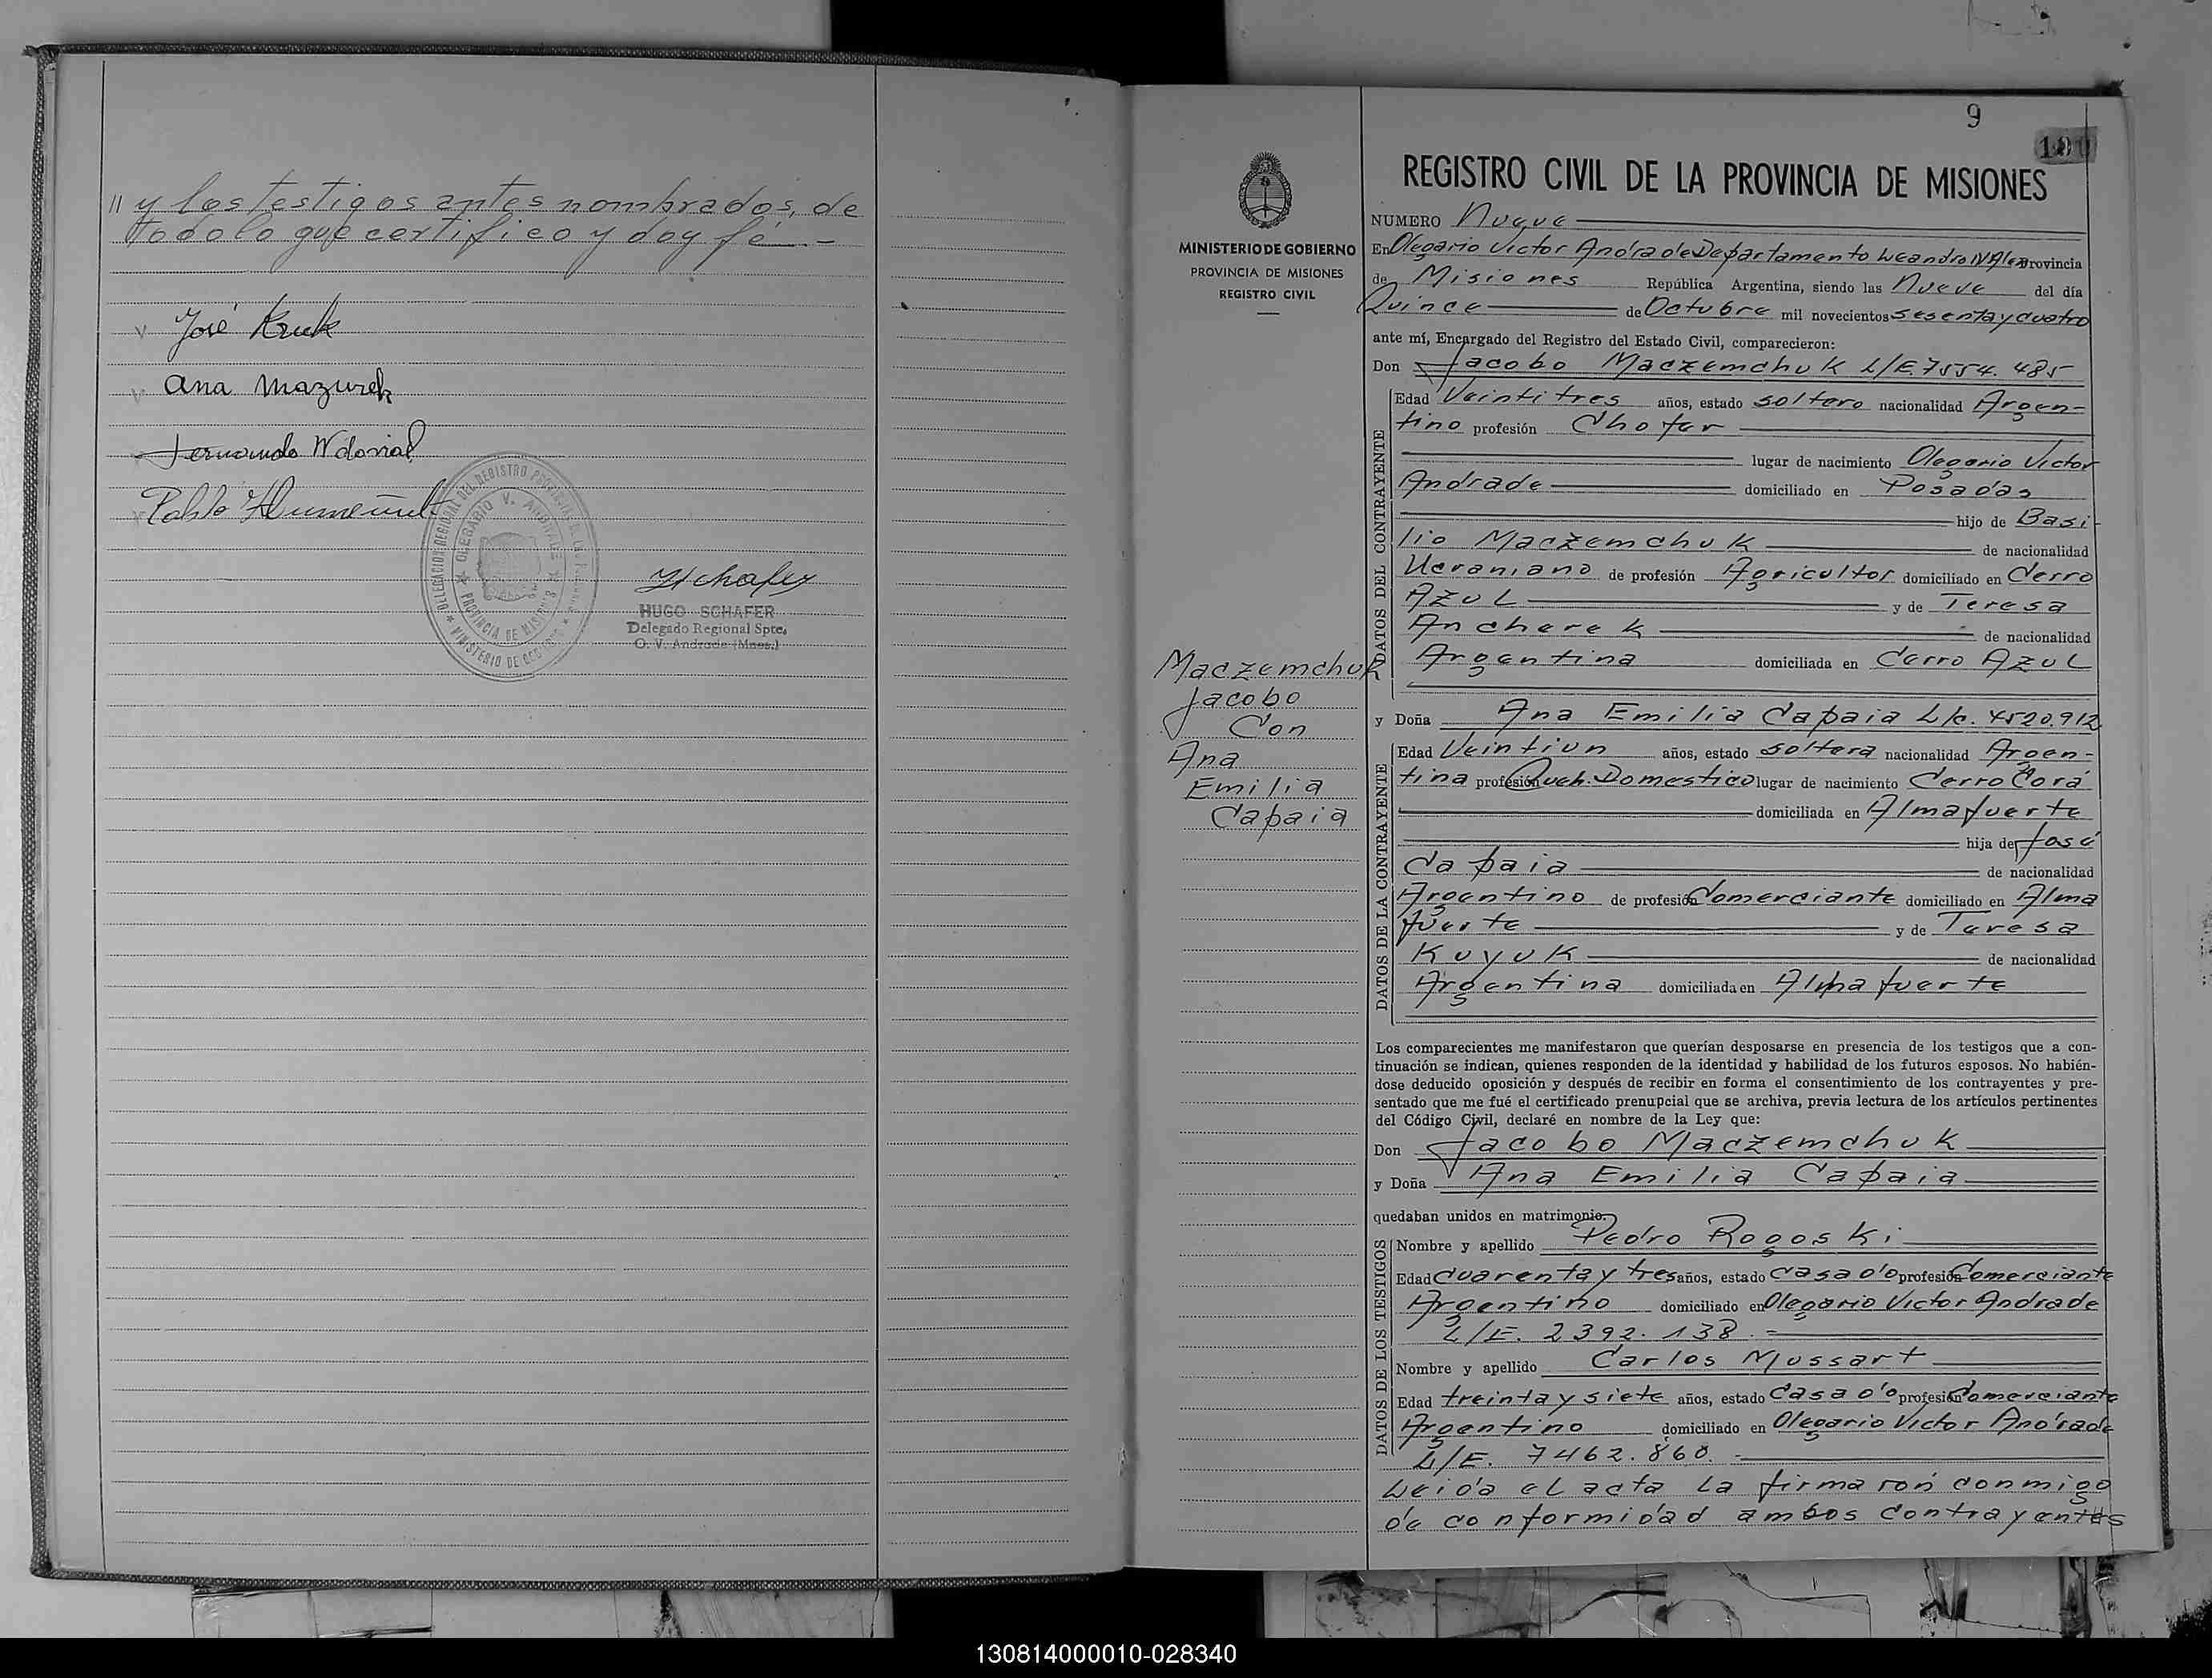 // y los testigos antes nombrados, de
todo lo que certifico y doy fé.-
José Kruk
Ana Mazurek
Fernando
Pablo
HUGO SCHAFER
Delegado Regional Spte.
O. V. Andrade (Mnes.)
OLEGARIO V. ANDRADE
PROVINCIA DE MISIONES
9
REGISTRO CIVIL DE LA PROVINCIA DE MISIONES
MINISTERIO DE GOBIERNO
PROVINCIA DE MISIONES
REGISTRO CIVIL
Maczemchuk
Jacobo
Con
Ana
Emilia
Capaia
NUMERO Nueve
En Olegario Victor Andrade Departamento Leandro N Alem Provincia
de Misiones República Argentina, siendo las Nueve del día
Quince de Octubre mil novecientos sesenta y cuatro
ante mí, Encargado del Registro del Estado Civil, comparecieron:
Don Jacobo Maczemchuk L/E. 7554.485
DATOS DEL CONTRAYENTE
Edad Veintitres años, estado soltero nacionalidad Argen-
tino profesión Chofer
lugar de nacimiento Olegario Victor
Andrade domiciliado en Posadas
hijo de Basi-
lio Maczemchuk de nacionalidad
Ucraniano de profesión Agricultor domiciliado en Cerro
Azul y de Teresa
Ancherek de nacionalidad
Argentina domiciliada en Cerro Azul
y Doña Ana Emilia Capaia L/c. 4520.912
DATOS DE LA CONTRAYENTE
Edad Veintiun años, estado soltera nacionalidad Argen-
tina profesión Queh. Domestico lugar de nacimiento Cerro Corá
domiciliada en Almafuerte
hija de José
Capaia de nacionalidad
Argentino de profesión Comerciante domiciliado en Alma
fuerte y de Teresa
Kuyuk de nacionalidad
Argentina domiciliada en Almafuerte
Los comparecientes me manifestaron que querían desposarse en presencia de los testigos que a con-
tinuación se indican, quienes responden de la identidad y habilidad de los futuros esposos. No habién-
dose deducido oposición y después de recibir en forma el consentimiento de los contrayentes y pre-
sentado que me fué el certificado prenupcial que se archiva, previa lectura de los artículos pertinentes
del Código Civil, declaré en nombre de la Ley que:
Don Jacobo Maczemchuk
y Doña Ana Emilia Capaia
quedaban unidos en matrimonio.
DATOS DE LOS TESTIGOS
Nombre y apellido Pedro Rogoski
Edad cuarenta y tres años, estado casado profesión Comerciante
Argentino domiciliado en Olegario Victor Andrade
L/E. 2392.138.-
Nombre y apellido Carlos Mussart
Edad treinta y siete años, estado Casado profesión Comerciante
Argentino domiciliado en Olegario Victor Andrade
L/E. 7462.860.-
Leida el acta la firmaron conmigo
de conformidad ambos contrayentes
130814000010-028340